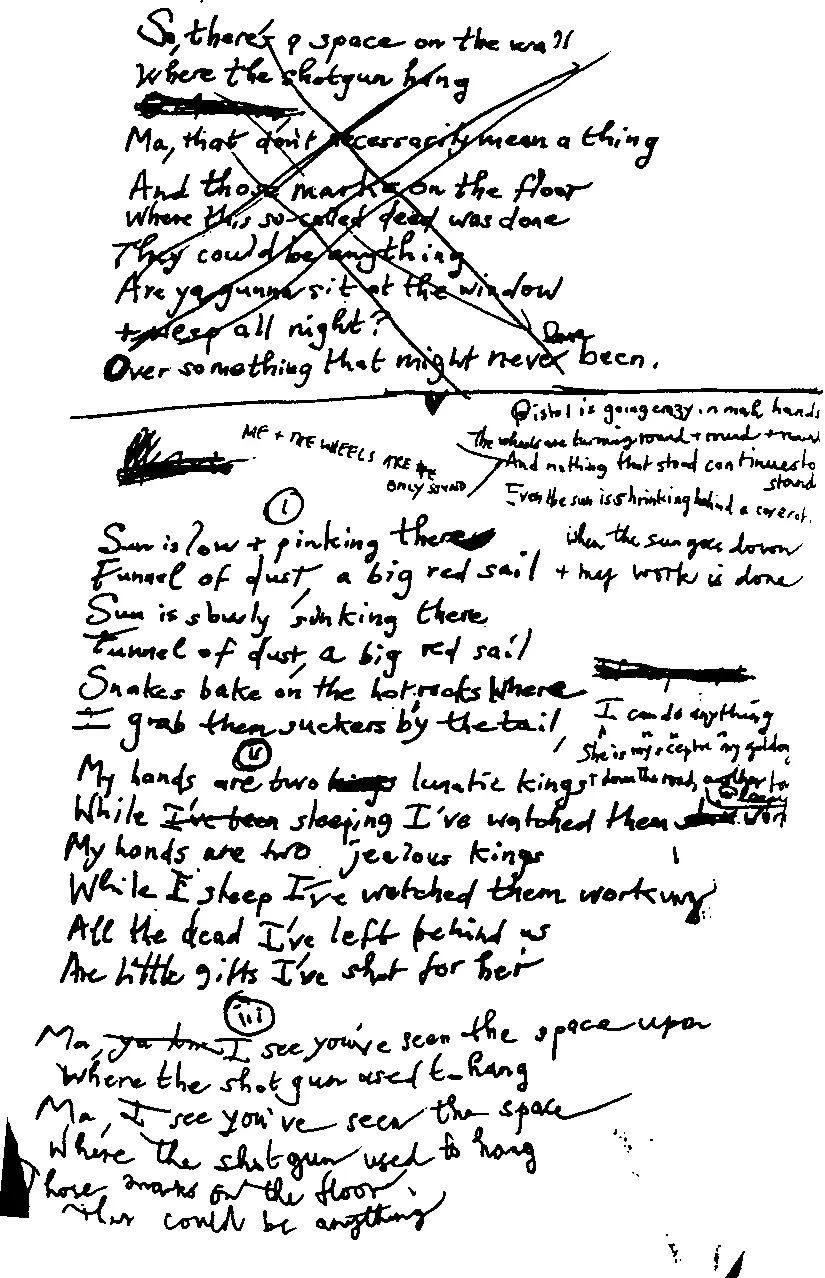 So, there's a space on the wall
Where the shotgun hang
Ma, that don't necessarily mean a thing
And those marks on the floor
Where this so-called deed was done
They could be anything
Are ya gunna sit at the window
+ weep all night?
Over something that might never been.
Pistol is going crazy in mah hands
The wheels are turning round + round + round
And nothing that stood continues to
stand
Even the sun is shrinking behind a
ME + THE WHEELS ARE THE
ONLY SOUND
when the sun goes down
+ my work is done
i
Sun is low + pinking there
Funnel of dust, a big red sail
Sun is slowly sinking there
Funnel of dust, a big red sail
Snakes bake on the hot rocks where
I grab them suckers by the tail
I can do anything
She is my sceptre my golden
+ down the road, another
ii
My hands are two lunatic kings
While I've been sleeping I've watched them work
My hands are two jealous kings
While I sleep I've watched them working
All the dead I've left behind us
Are little gifts I've shot for her
iii
Ma, ya I see you've seen the space upon
Where the shotgun used to hang
Ma, I see you've seen the space
Where the shotgun used to hang
marks on the floor
could be anything